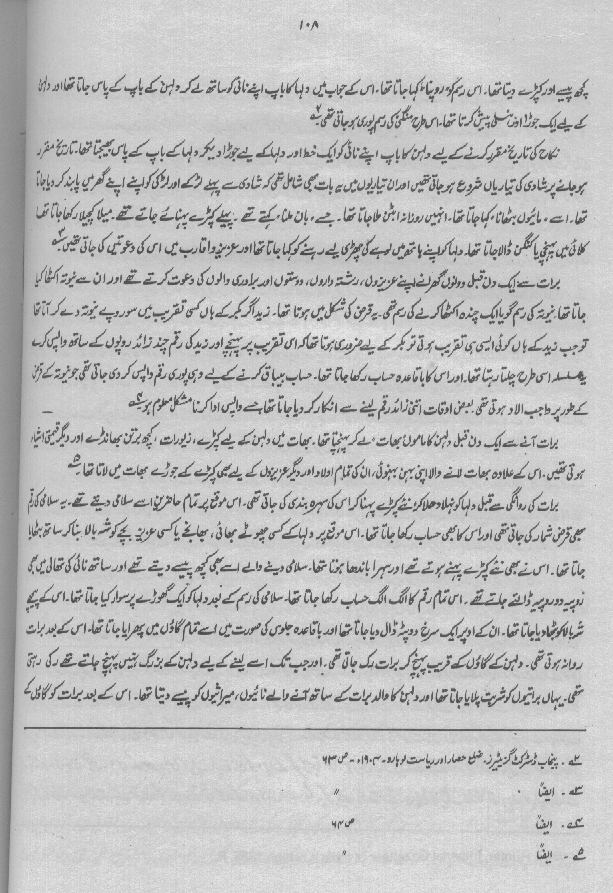 ۱۰۸
کچھ پیسے اور کپڑے دیتا تھا۔ اس رسم کو ’روپنا‘ کہا جاتا تھا۔ اس کے جواب میں دلہا کا باپ اپنے نائی کو ساتھ لے کر دلہن کے باپ کے پاس جاتا تھا اور دلہن
کے لیے ایک جوڑا اور ہنسلی پیش کرتا تھا۔ اس طرح منگنی کی رسم پوری ہو جاتی تھی۔
نکاح کی تاریخ مقرر کرنے کے لیے دلہن کا باپ اپنے نائی کو ایک خط اور دلہا کے لیے جوڑا دیکر دلہا کے باپ کے پاس بھیجتا تھا۔ تاریخ مقرر
ہو جانے پر شادی کی تیاریاں شروع ہو جاتی تھیں اور ان تیاریوں میں یہ بات بھی شامل تھی کہ شادی سے پہلے لڑکے اور لڑکی کو اپنے اپنے گھر میں پابند کر دیا جاتا
تھا۔ اسے ’مائیوں بٹھانا‘ کہا جاتا تھا۔ انہیں روزانہ ابٹن ملا جاتا تھا۔ جسے ’بان ملنا‘ کہتے تھے۔ پہلے کپڑے پہنائے جاتے تھے۔ میلا کچیلا رکھا جاتا تھا
کلائی میں پہنچی یا کنگن ڈالا جاتا تھا۔ دلہا کو اپنے ہاتھ میں لوہے کی چھڑی لیے رہنے کو کہا جاتا تھا اور عزیز و اقارب میں اس کی دعوتیں کی جاتی تھیں۔
برات سے ایک دن قبل دونوں گھرانے اپنے عزیزوں، رشتہ داروں، دوستوں اور برادری والوں کی دعوت کرتے تھے اور ان سے نیوتہ اکٹھا کیا
جاتا تھا۔ نیوتہ کی رسم گویا ایک چندہ اکٹھا کرنے کی رسم تھی۔ یہ قرض کی شکل میں ہوتا تھا۔ زید اگر بکر کے ہاں کسی تقریب میں سو روپے نیوتہ دے کر آتا تھا
تو جب زید کے ہاں کوئی ایسی ہی تقریب ہوتی تو بکر کے لیے ضروری ہوتا تھا کہ اس تقریب پر پہنچے اور زید کی رقم چند زائد روپوں کے ساتھ واپس کرے
یہ سلسلہ اسی طرح چلتا رہتا تھا۔ اور اس کا باقاعدہ حساب رکھا جاتا تھا۔ حساب بیباق کرنے کے لیے وہی پوری رقم واپس کر دی جاتی تھی جو نیوتہ کے قرض
کے طور پر واجب الادا ہوتی تھی۔ بعض اوقات اتنی زائد رقم لینے سے انکار کر دیا جاتا تھا، جسے واپس ادا کرنا مشکل معلوم ہو۔
برات آنے سے ایک دن قبل دلہن کا ماموں ’بھات‘ لے کر پہنچتا تھا۔ بھات میں دلہن کے لیے کپڑے، زیورات، کچھ برتن بھانڈے اور دیگر قیمتی اشیاء
ہوتی تھیں۔ اس کے علاوہ بھات لانے والا اپنی بہن بہنوئی، ان کی تمام اولاد اور دیگر عزیزوں کے لیے بھی کپڑے کے جوڑے بھات میں لاتا تھا۔
برات کی روانگی سے قبل دلہا کو نہلا دھلا کر نئے کپڑے پہنا کر اس کی سہرہ بندی کی جاتی تھی۔ اس موقع پر تمام حاضرین اسے سلامی دیتے تھے۔ یہ سلامی کی رقم
بھی قرض شمار کی جاتی تھی اور اس کا بھی حساب رکھا جاتا تھا۔ اس موقع پر دلہا کے کسی چھوٹے بھائی، بھانجے یا کسی عزیز بچے کو شہ بالا بنا کر ساتھ بٹھایا
جاتا تھا۔ اس نے بھی نئے کپڑے پہنے ہوتے تھے اور سہرا باندھا ہوتا تھا۔ سلامی دینے والے اسے بھی کچھ پیسے دیتے تھے اور ساتھ نائی کی تھالی میں بھی
روپیہ دو روپیہ ڈالے جاتے تھے۔ اس تمام رقم کا الگ الگ حساب رکھا جاتا تھا۔ سلامی کی رسم کے بعد دلہا کو ایک گھوڑے پر سوار کیا جاتا تھا۔ اس کے پیچھے
شہ بالا کو بٹھا دیا جاتا تھا۔ ان کے اوپر ایک سرخ دوپٹہ ڈال دیا جاتا تھا اور باقاعدہ جلوس کی صورت میں اسے تمام گاؤں میں پھرایا جاتا تھا۔ اس کے بعد برات
روانہ ہوتی تھی۔ دلہن کے گاؤں کے قریب پہنچ کر برات رک جاتی تھی۔ اور جب تک اسے لینے کے لیے دلہن کے بزرگ نہیں پہنچ جاتے تھے رکی رہتی
تھی۔ یہاں براتیوں کو شربت پلایا جاتا تھا اور دلہن کا والد برات کے ساتھ آنے والے نائیوں، میراثیوں کو پیسے دیتا تھا۔ اس کے بعد برات کو گاؤں کے
۲ے۔ پنجاب ڈسٹرکٹ گزیٹیرز، ضلع حصار اور ریاست لوہارو۔ ۱۹۰۴ء۔ ص ۶۳
۳ے۔ ایضاً 〃
۴ے۔ ایضاً ص ۶۴
۵ے۔ ایضاً 〃